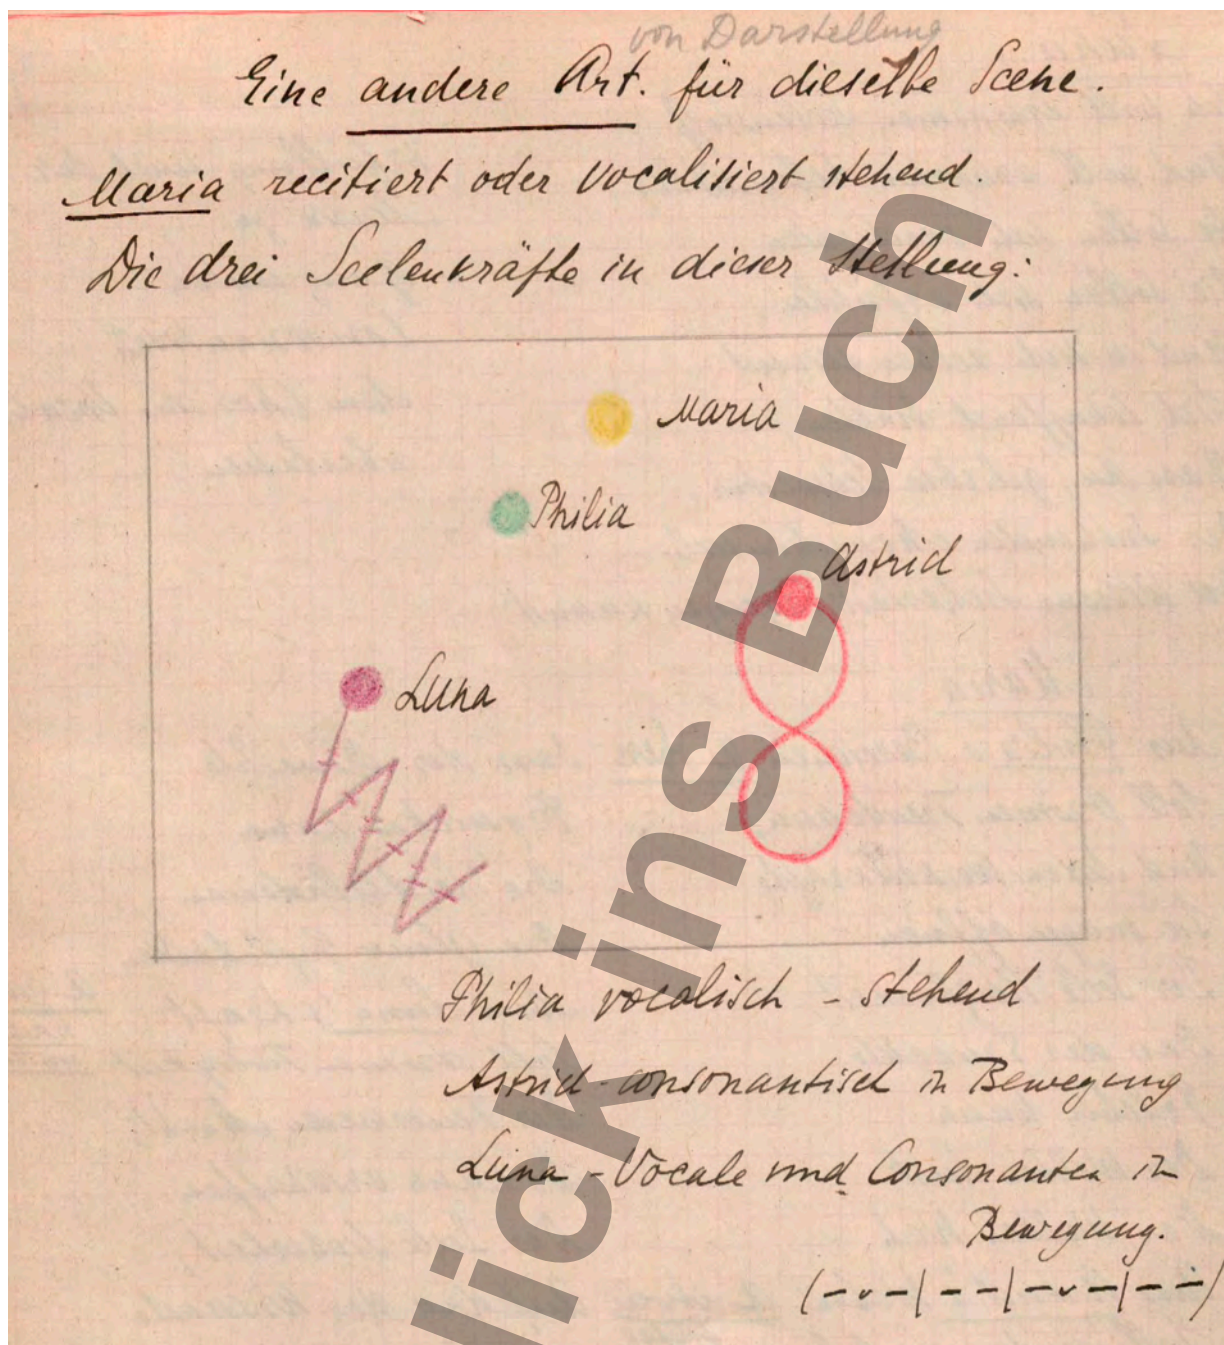 von Darstellung
Eine andere Art. für dieselbe Scene.
Maria recitiert oder vocalisiert stehend.
Die drei Seelenkräfte in dieser Stellung:
Maria
Philia
Astrid
Luna
Philia vocalisch - stehend
Astrid - consonantisch in Bewegung
Luna - Vocale und Consonanten in
Bewegung.
(– ᴗ – | – – | – ᴗ – | – – )
lick ins Buch